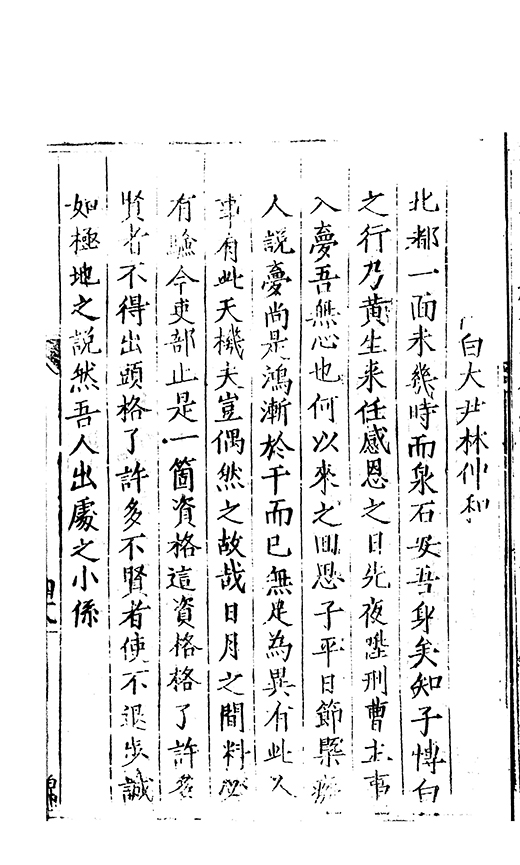 白大尹林仲和
北都一面未幾時而泉石安吾身矣知子博白
之行乃黄生来任感恩之日先夜陞刑曹主事
入夢吾無心也何以來之回思子平日節槩
人說夢尚是鴻漸於干而已無足為異有此人
事有此天機夫豈偶然之故哉日月之間料必
有驗今吏部止是一箇資格這資格格了許多
賢者不得出頭格了許多不賢者使不退步誠
如極地之説然吾人出處之小係